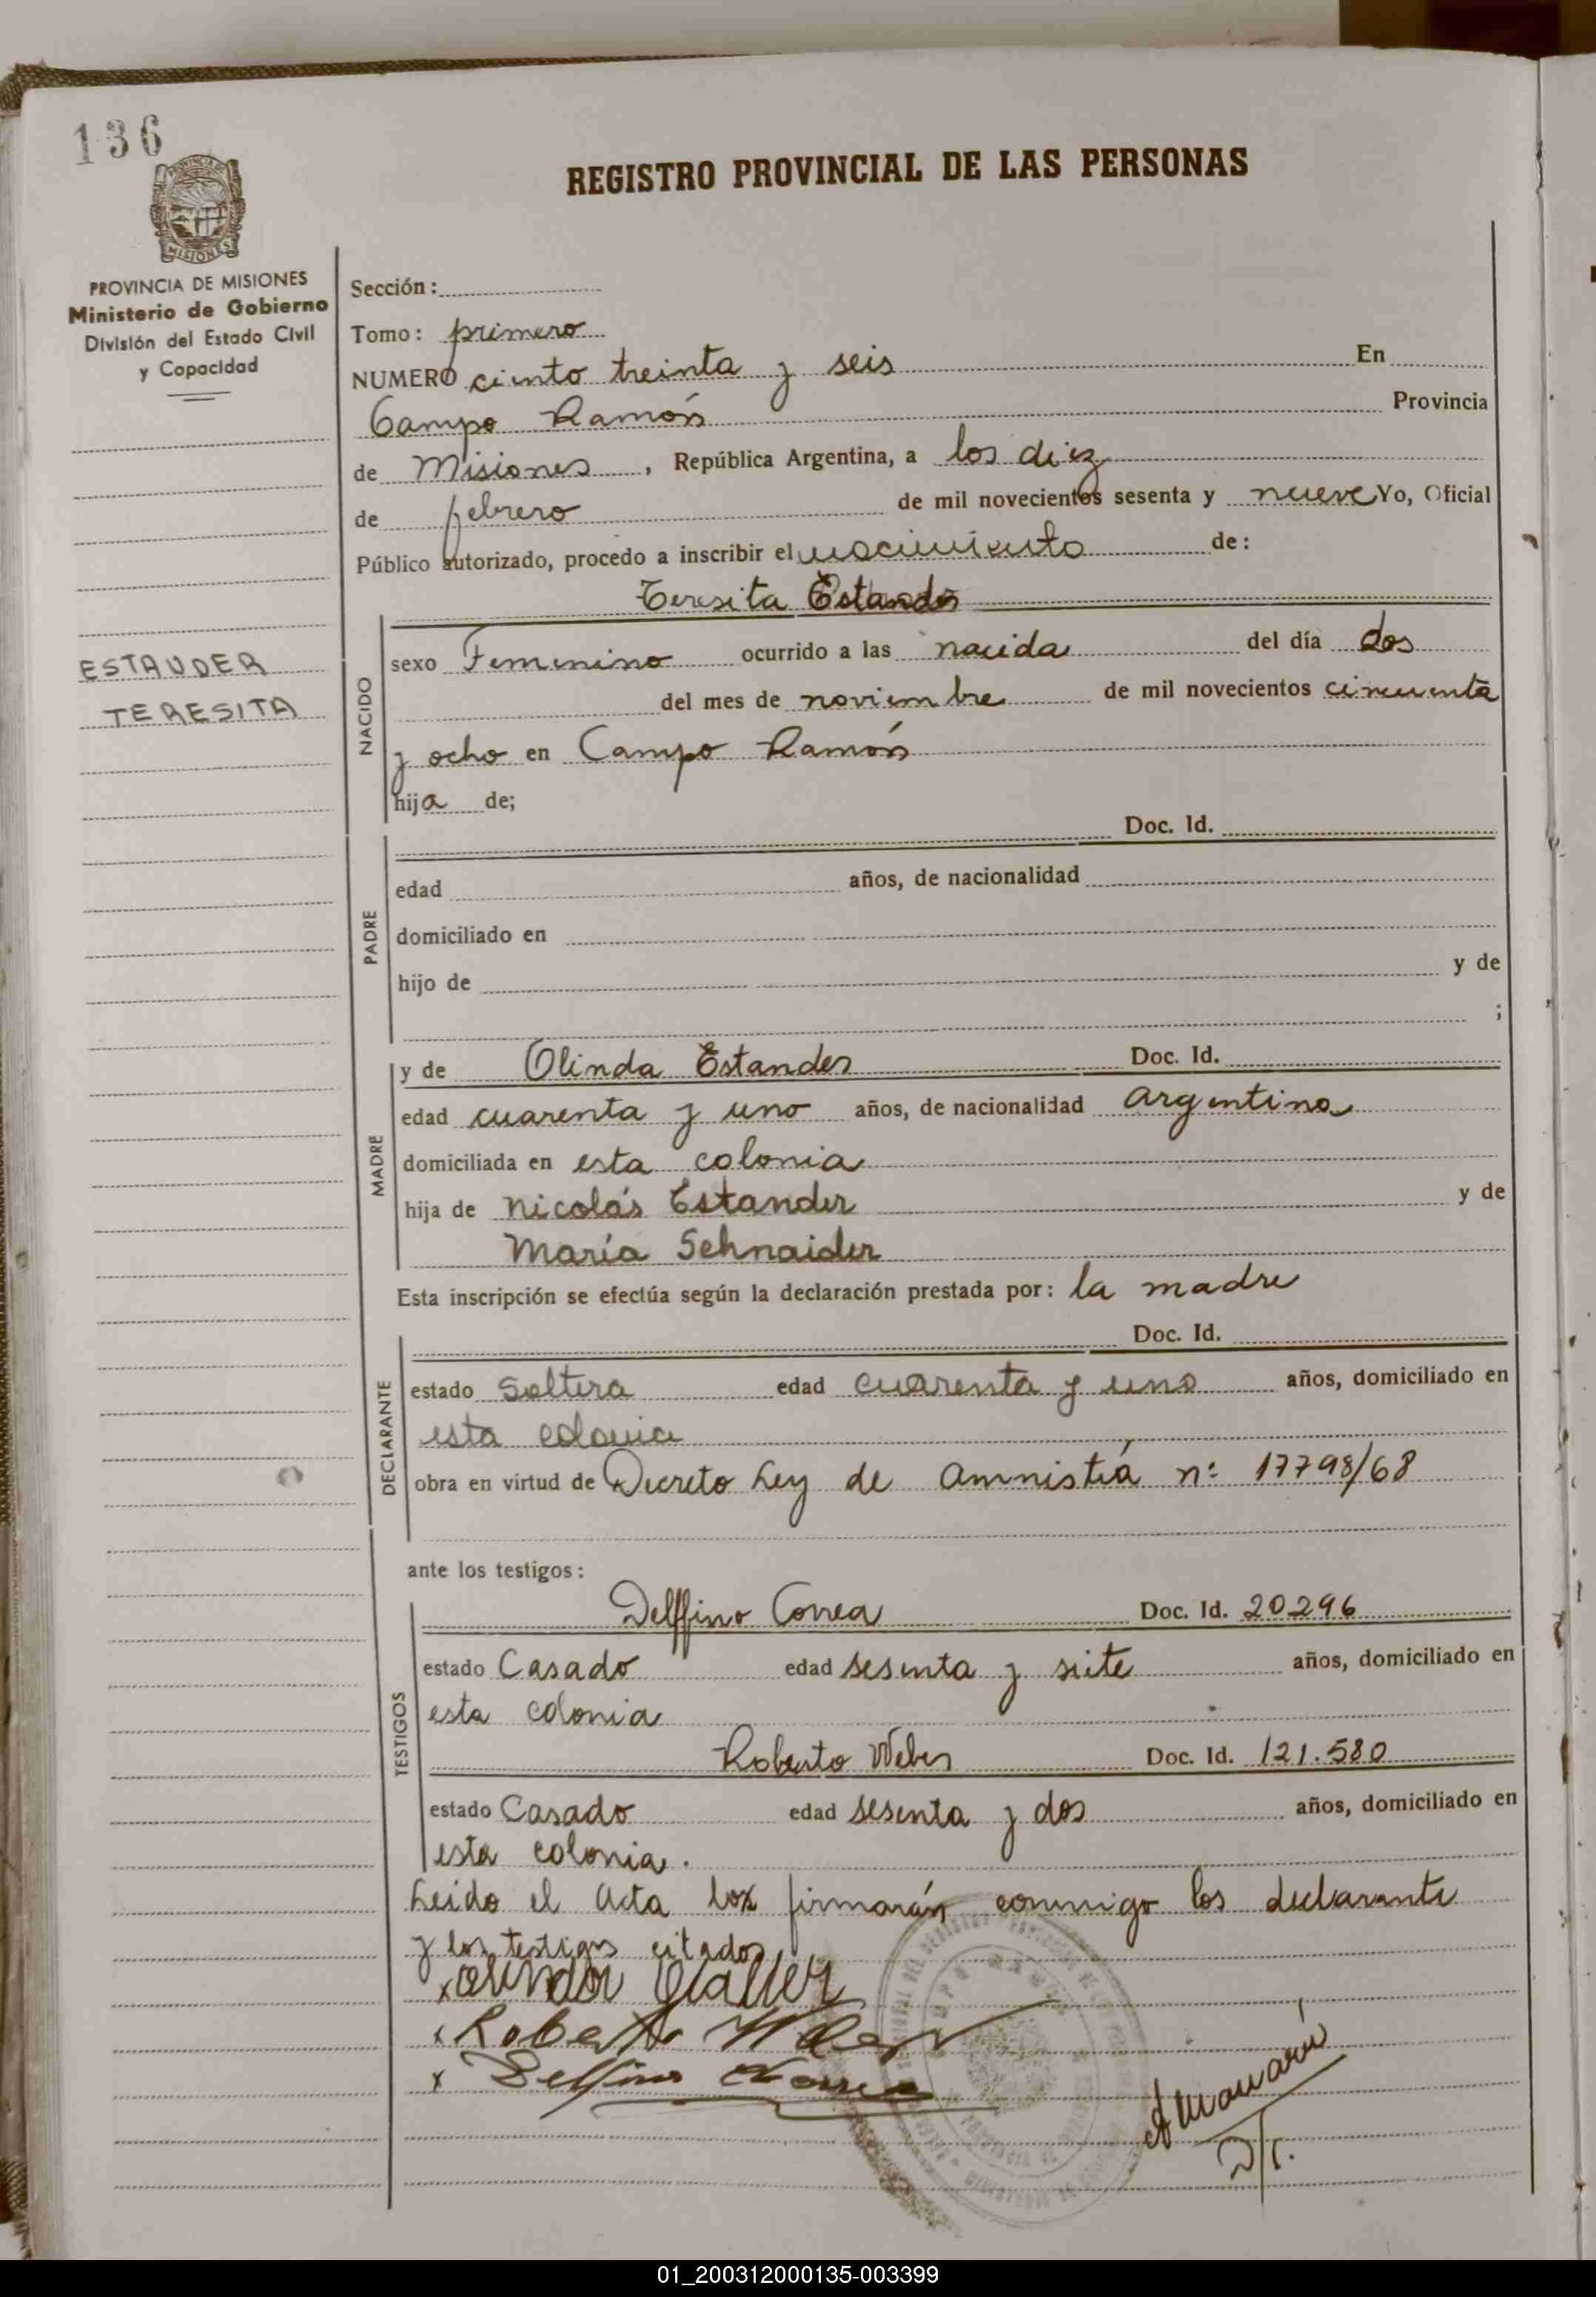 136
PROVINCIA DE
MISIONES
REGISTRO PROVINCIAL DE LAS PERSONAS
PROVINCIA DE MISIONES
Ministerio de Gobierno
División del Estado Civil
y Capacidad
ESTANDER
TERESITA
Sección:
Tomo: primero
NUMERO ciento treinta y seis En
Campo Ramón Provincia
de Misiones, República Argentina, a los diez
de febrero de mil novecientos sesenta y nueve Yo, Oficial
Público autorizado, procedo a inscribir el nacimiento de:
Teresita Estander
NACIDO
sexo Femenino ocurrido a las nacida del día dos
del mes de noviembre de mil novecientos cincuenta
y ocho en Campo Ramón
hija de;
Doc. Id.
PADRE
edad años, de nacionalidad
domiciliado en
hijo de y de
;
MADRE
y de Olinda Estander Doc. Id.
edad cuarenta y uno años, de nacionalidad argentina
domiciliada en esta colonia
hija de Nicolás Estander y de
María Schnaider
Esta inscripción se efectúa según la declaración prestada por: la madre
Doc. Id.
DECLARANTE
estado Soltera edad cuarenta y uno años, domiciliado en
esta colonia
obra en virtud de Decreto Ley de Amnistía nº 17798/68
ante los testigos:
TESTIGOS
Delffino Correa Doc. Id. 20296
estado Casado edad sesenta y siete años, domiciliado en
esta colonia
Roberto Weber Doc. Id. 121.580
estado Casado edad sesenta y dos años, domiciliado en
esta colonia.
Leido el Acta lox firmarán conmigo los declarante
y los testigos citados
x
x Roberto Weber
x Delfino Correa
01_200312000135-003399